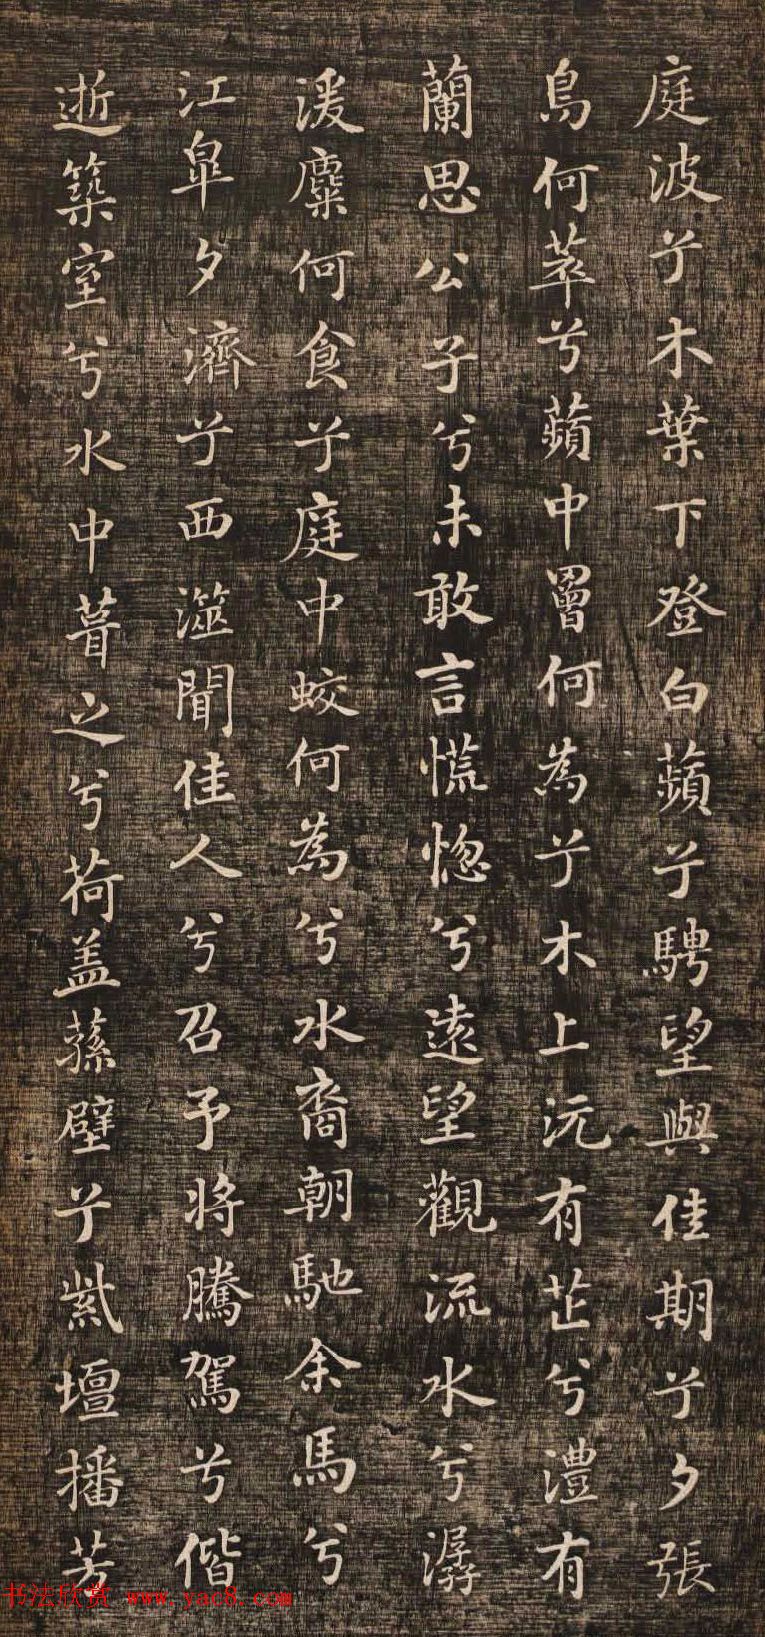 庭波兮木葉下登白蘋兮騁望與佳期兮夕張
鳥何萃兮蘋中罾何為兮木上沅有芷兮澧有
蘭思公子兮未敢言慌惚兮遠望觀流水兮潺
湲麋何食兮庭中蛟何為兮水裔朝馳余馬兮
江皐夕濟兮西澨聞佳人兮召予將騰駕兮偕
逝築室兮水中葺之兮荷盖蓀壁兮紫壇播芳
书法欣赏 www.yac8.com